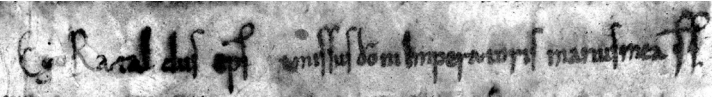 Ego Ratal dus eps missus domni Imperatoris manumea ss